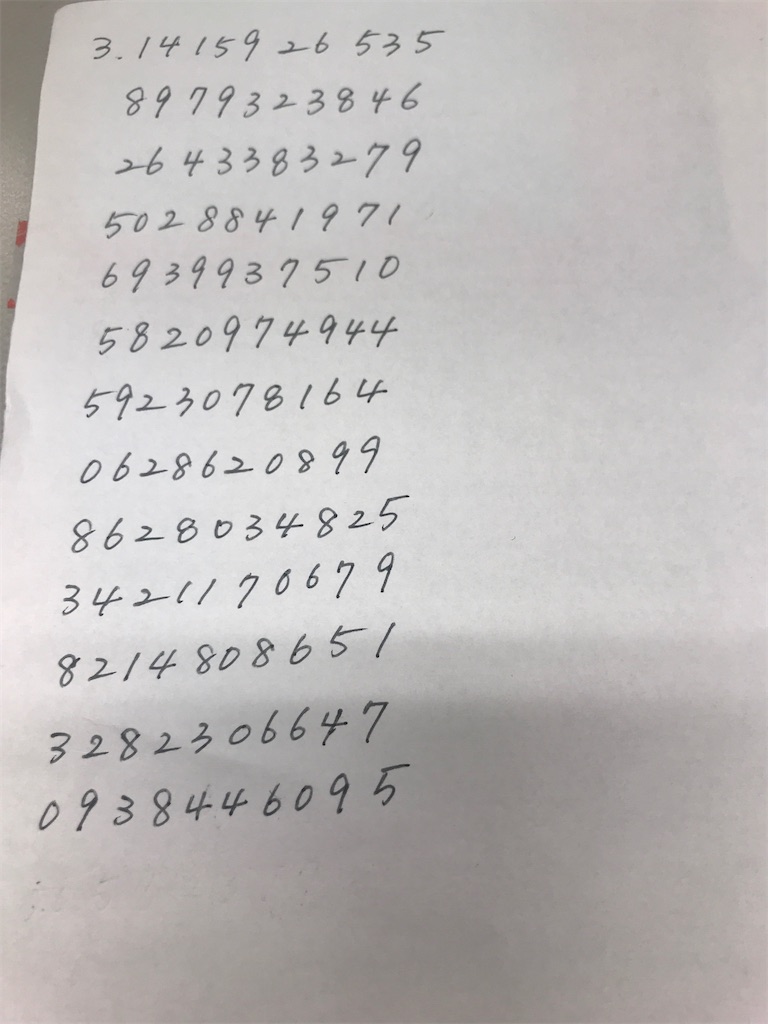 3.1415926535
8979323846
2643383279
5028841971
6939937510
5820974944
5923078164
0628620899
8628034825
3421170679
8214808651
3282306647
0938446095